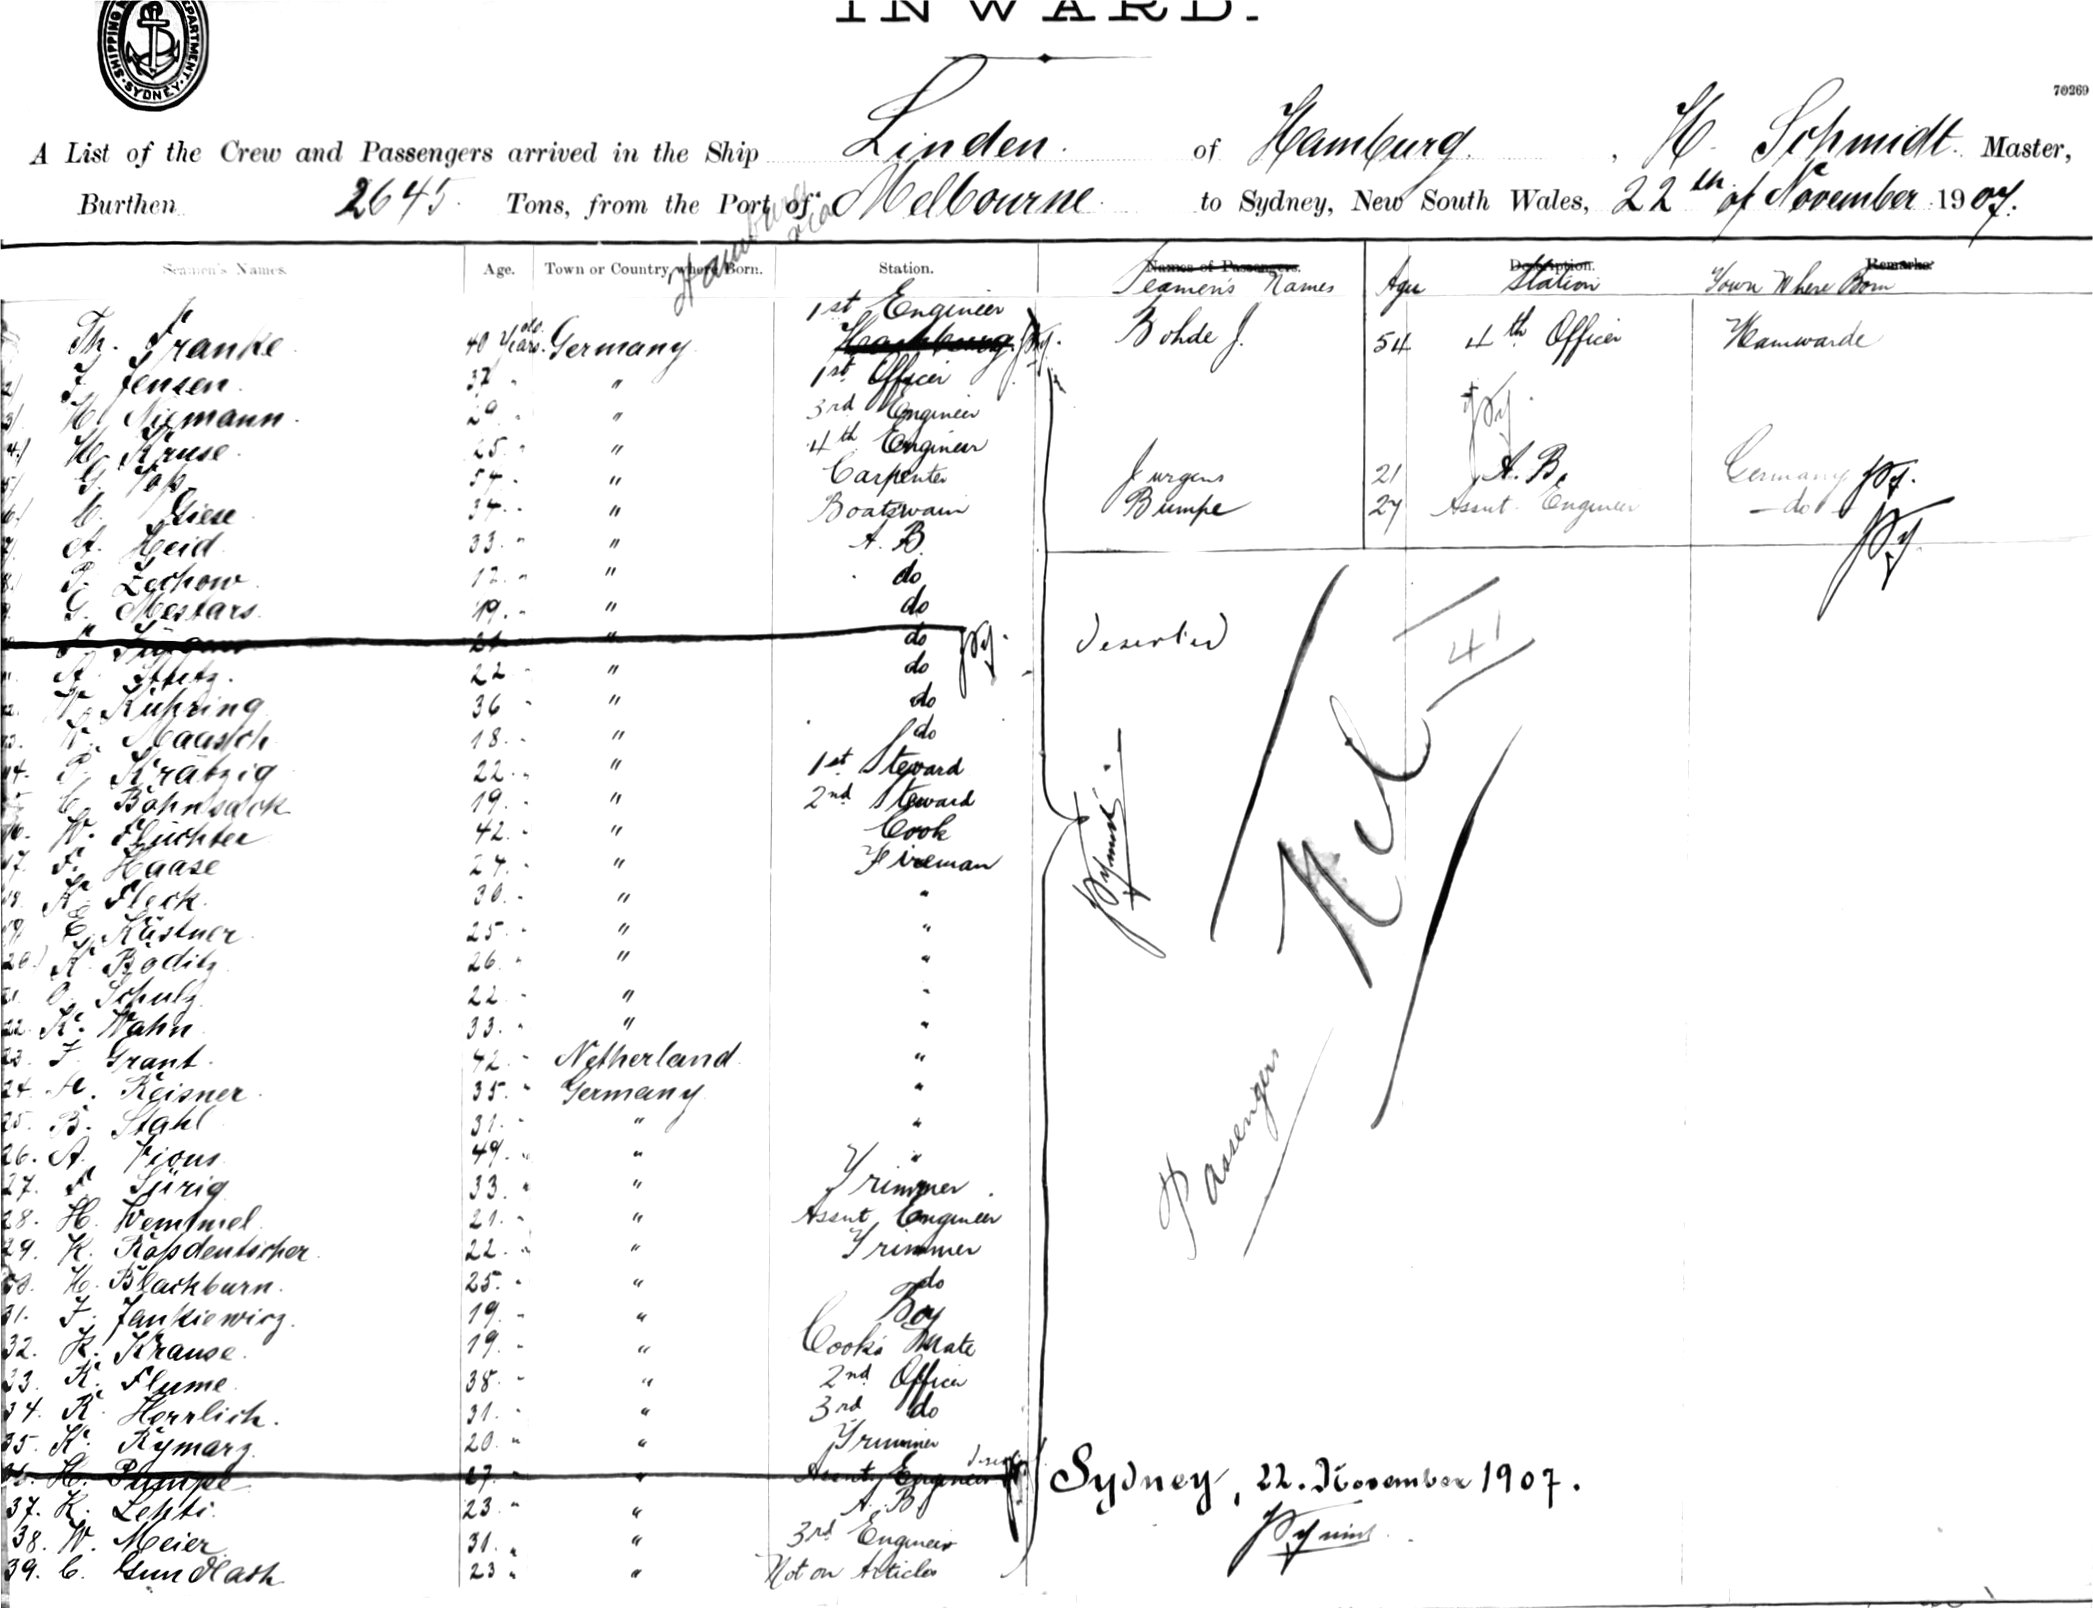 INWARD.
SHIPPING DEPARTMENT. SYDNEY.
70269
A List of the Crew and Passengers arrived in the Ship Linden. of Hamburg, H. Schmidt. Master,
Burthen 2645. Tons, from the Port of Melbourne to Sydney, New South Wales, 22th of November 1907.
Hamburg via
Seamen's Names. Age. Town or Country where Born. Station. Names of Passengers. Description. Remarks
Seamen's Names Age Station Town Where Born
1st Engineer
Th. Franke 40 Years old. Germany Bohde J. 54 4th Officer Hamwarde
2) J. Jensen. 37 " 1st Officer
3) H. Niemann. 29 " 3rd Engineer
4) H. Kruse. 25. " 4th Engineer
5) G. 54. " Carpenter Jurgens 21 A. B. Germany
6) C. Giese 34. " Boatswain Bumpe 27 Assnt. Engineer do
7) A. Heid 33. " A. B.
8) P. Zechow 12. " do
9. G. Mestars. 19. " do
21 " do Deserted
11. A. 22 " do
12. W. Kühring 36 " do
13. W. Maasch 18. " do
14. P. Krätzig 22. " 1st Steward
15. C. Böhnsack 19. " 2nd Steward
16. W. Flüchter 42. " Cook
17. F. Haase 24. " Fireman
18. K. Fleck. 30. " "
19. E. Küstner. 25. " "
20.) K. Böditz 26. " "
21. O. Schulz 22. " "
22. K. Wahn 33. " "
23. F. Grant. 42. Netherland "
24. H. Reisner. 35. Germany "
25. B. Stahl 31. " "
26. A. Vious 49. " "
27. F. Sürig 33. " Trimmer
28. H. Wemmel. 21. " Assnt Engineer
29. K. Roßdeutscher. 22. " Trimmer
30. H. Blackburn. 25. " do
31. F. Jankiewicz. 19. " Boy
32. K. Krause. 19. " Cook's Mate
33. K. Flume. 38. " 2nd Officer
34. R. Herrlich. 31. " 3rd do
35. K. Rymarz. 20. " Trimmer
36. H. Pumpe 27. " Assnt. Engineer
37. K. Lehti. 23. " A. B.
38. W. Meier. 31. " 3rd Engineer
39. C. Gundlach 23 " Not on Articles
Nil
41
Passengers
Sydney, 22. November 1907.